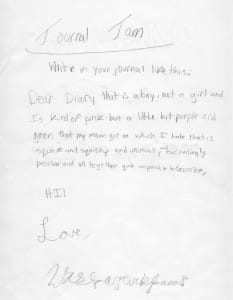 Journal Jam
Write in your journal like this:
Dear Diary that is a boy, not a girl and
Is kind of pink but a little bit purple and
green that my mom got me which I hate that is
square and squishy and unusually, exceedingly
peculiar and all together quite impossible to describe,
HI!
Love,